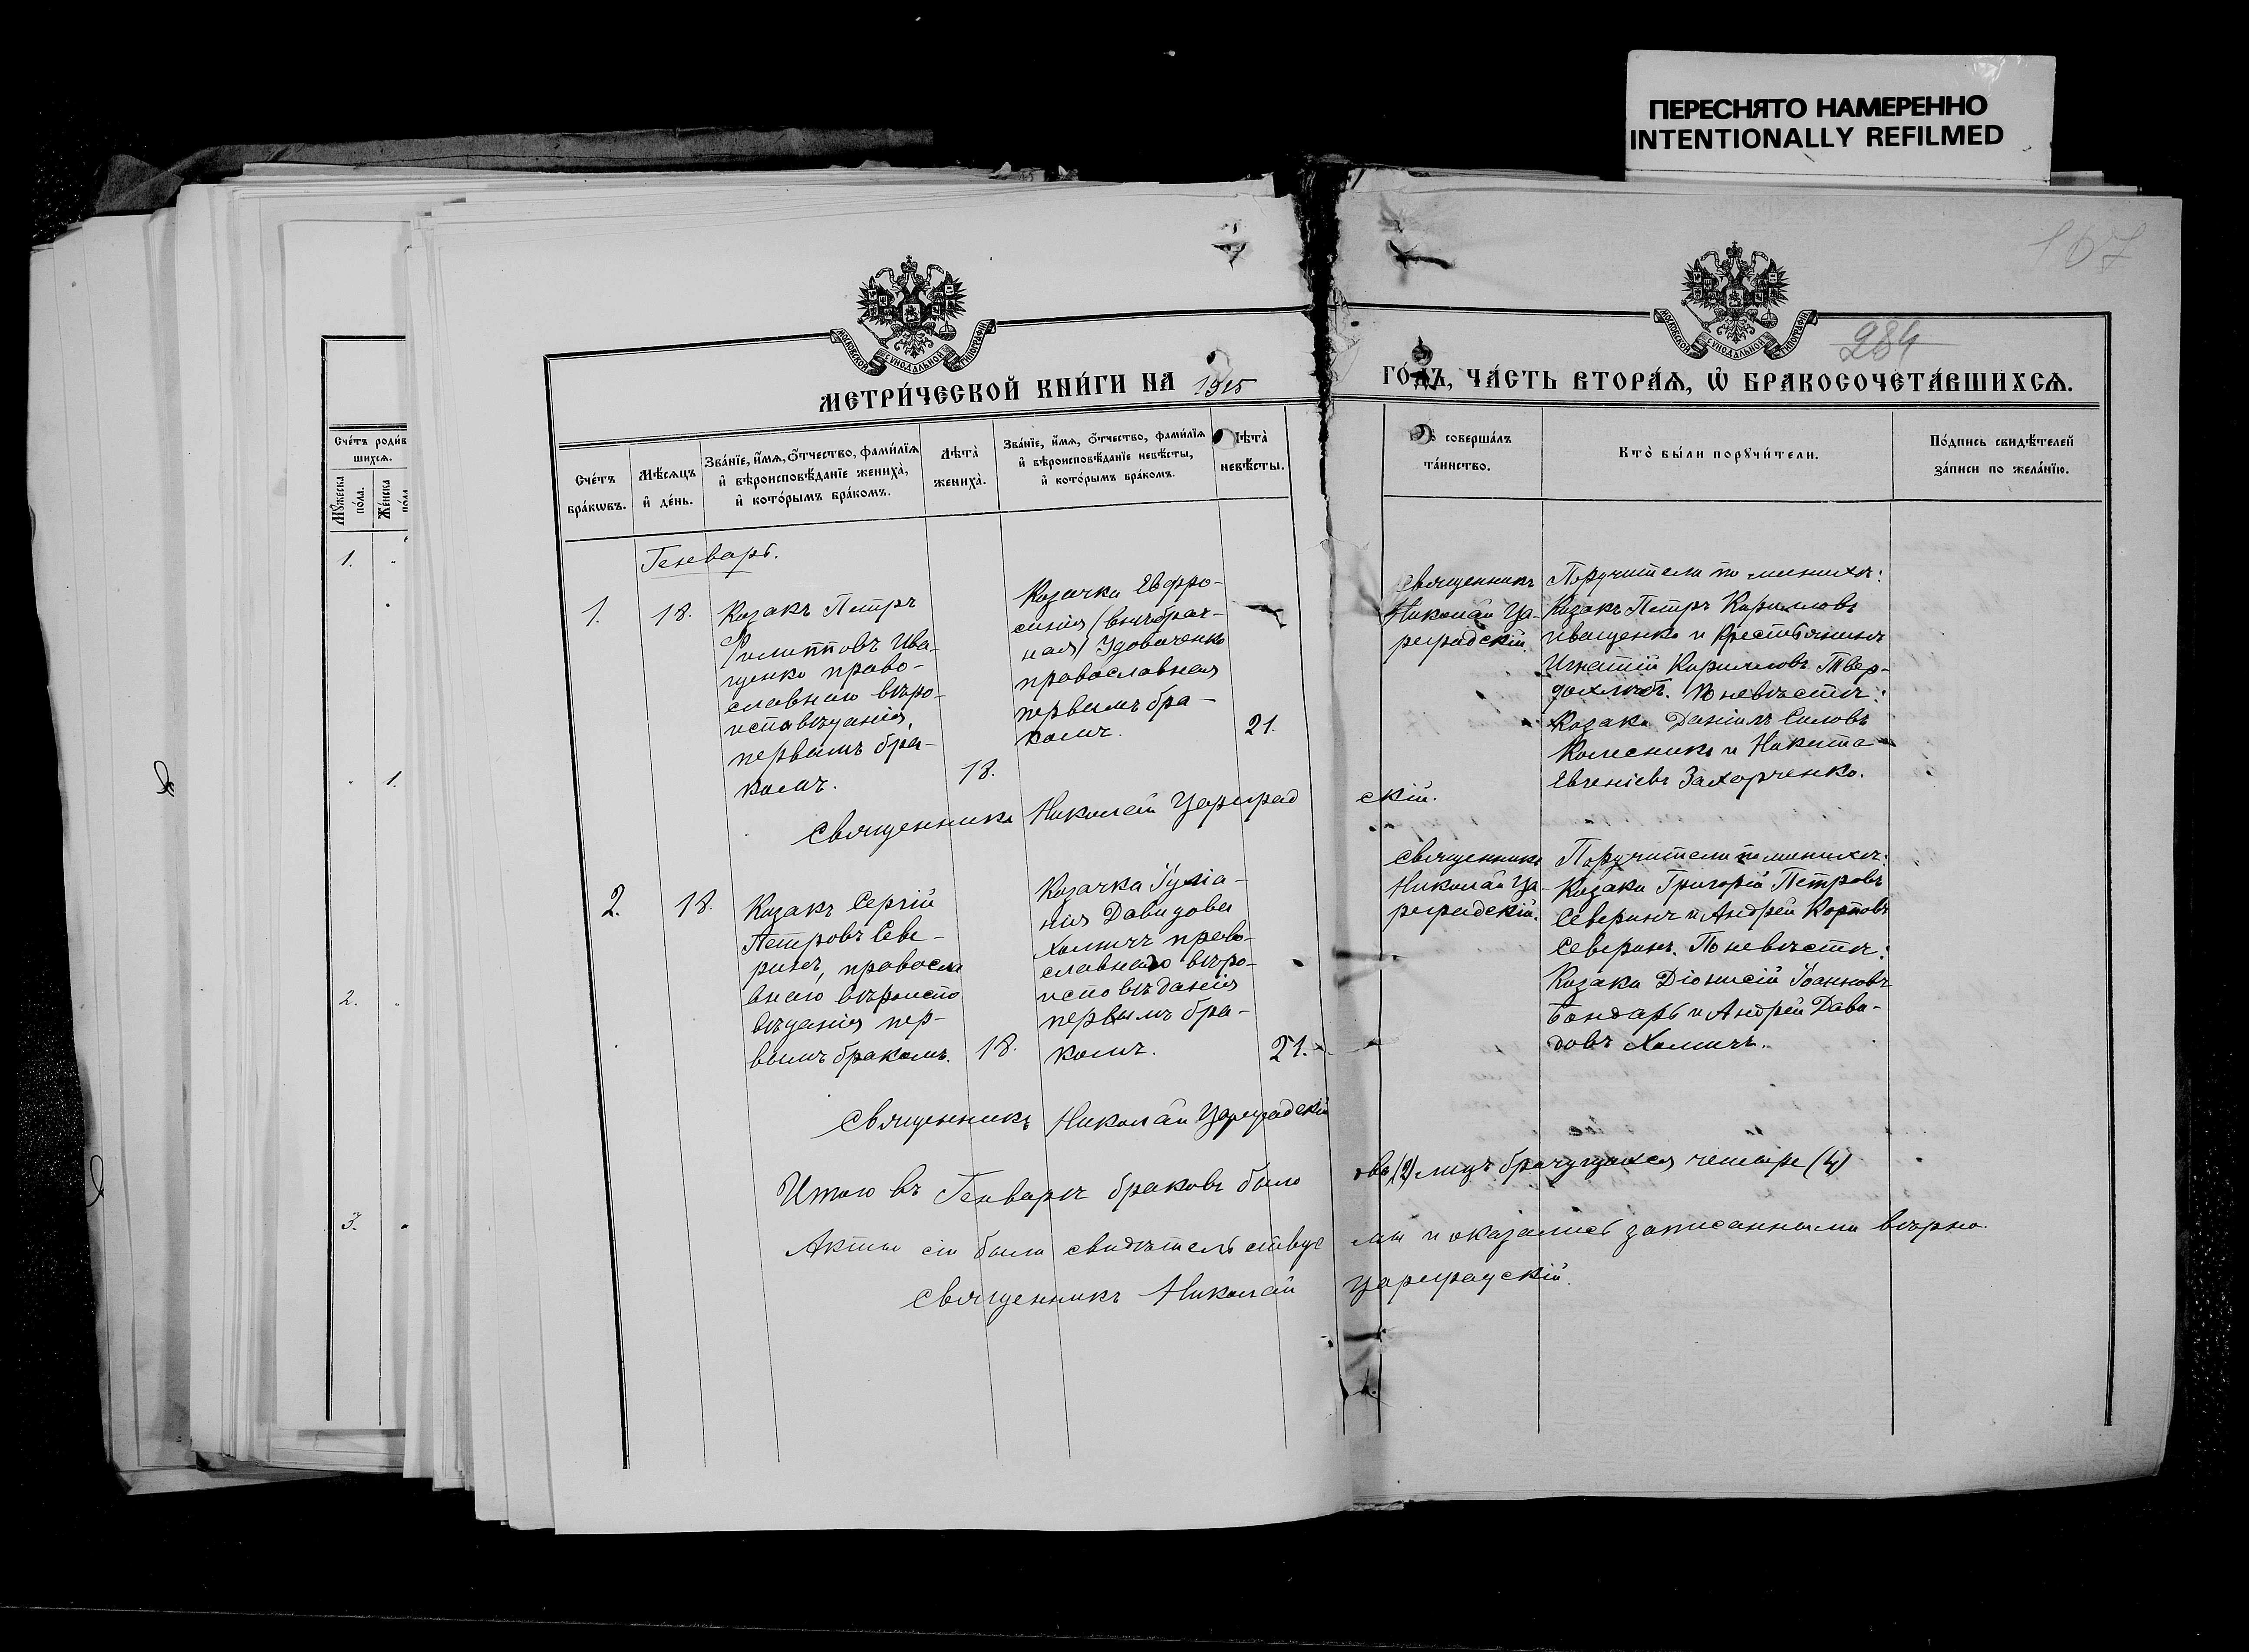 ПЕРЕСНЯТО НАМЕРЕННО
INTENTIONALLY REFILMED
167
284
МОСКОВСКОЙ СѴНОДАЛЬНОЙ ТИПОГРАФІИ
МОСКОВСКОЙ СѴНОДАЛЬНОЙ ТИПОГРАФІИ
МЕТРИ́ЧЕСКОЙ КНИ́ГИ НА 1915 ГО́ДЪ, ЧА́СТЬ ВТОРА́Я, Ѡ БРАКОСОЧЕТА́ВШИХСЯ.
Сче́тъ роди́в
шихся.
Мꙋ́жеска
по́ла.
Же́нска
по́ла
1.
1.
2.
3.
Сче́тъ
бра́кѡвъ.
Мѣ́сяцъ
и҆ де́нь.
Зва́нїе, и҆́мя, ѻ҆́тчество, фами́лїя
и҆ вѣроисповѣ́данїе жениха̀,
и҆ кото́рымъ бра́комъ.
Лѣ́та̀
жениха̀.
Зва́нїе, и҆́мя, ѻ҆́тчество, фами́лїя
и҆ вѣроисповѣ́данїе невѣ́сты,
и҆ кото́рымъ бра́комъ.
Лѣ́та̀
невѣ́сты.
соверша́лъ
та́инство.
Кто̀ бы́ли порꙋчи́тели.
По́дпись свидѣ́телей
за́писи по жела́нїю.
Генварь.
1.
18.
Козакъ Петръ
Филипповъ Ива-
щенко право-
славнаго вѣро-
исповѣданія,
первымъ бра-
комъ.
18.
Козачка Евфро-
синія (внѣбрач-
ная) Удовиченко
православная
первымъ бра-
комъ.
21.
Священникъ
Николай Ца-
реградскій.
Поручители по женихѣ:
Козакъ Петръ Кирилловъ
Иващенко и крестьянинъ
Игнатій Кирилловъ Твер-
дохлѣбъ. По невѣстѣ:
Козаки Даніилъ Силовъ
Колесникъ и Никита
Евгеніевъ Захарченко.
Священникъ Николай Цареградскій.
2.
18.
Козакъ Сергій
Петровъ Севе-
ринъ, правосла
внаго вѣроиспо
вѣданія пер-
вымъ бракомъ.
18.
Козачка Іуліа-
нія Давидова
Хомичъ право-
славнаго вѣро-
исповѣданія
первымъ бра-
комъ.
21.
Священникъ
Николай Ца-
реградскій.
Поручители по женихѣ:
Козаки Григорій Петровъ
Северинъ и Андрей Карповъ
Северинъ. По невѣстѣ:
Козаки Діонисій Іоанновъ
Бондарь и Андрей Дави-
довъ Хомичъ.
Священникъ Николай Цареградскій
Итого въ Генварѣ браковъ было два (2) лицъ брачущихся четыре (4)
Акты сіи были свидѣтельствуемы и оказались записанными вѣрно.
Священникъ Николай Цареградскій.